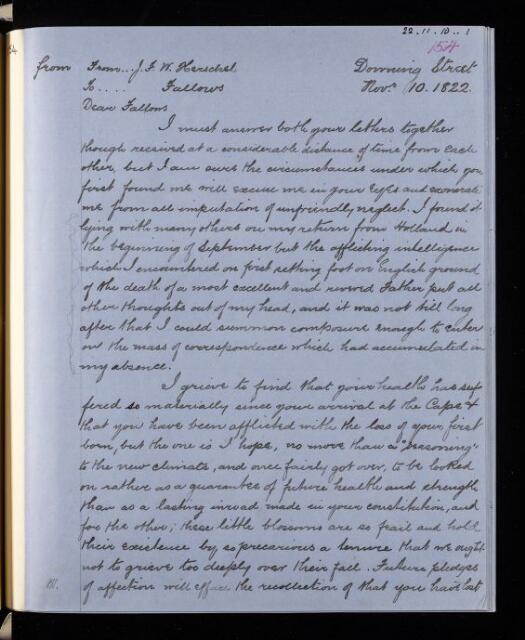 22.11.10..1
154
from From... J. F. W. Herschel Downing Street
To.... Fallows Novr. 10. 1822.
Dear Fallows
I must answer both your letters together
though received at a considerable distance of time from each
other, but I am sure the circumstances under which you
first found me will excuse me in your Eyes and exonerate
me from all imputation of unfriendly neglect. I found it
lying with many others on my return from Holland in
the beginning of September but the afflicting intelligence
which I encountered on first setting foot on English ground
of the death of a most excellent and revered Father put all
other thoughts out of my head, and it was not till long
after that I could summon composure enough to enter
on the mass of correspondence which had accumulated in
my absence.
I grieve to find that your health has suf
fered so materially since your arrival at the Cape &
that you have been afflicted with the loss of your first
born, but the one is I hope, no more than a "seasoning"
to the new climate, and once fairly got over, to be looked
on rather as a guarantee of future health and strength
than as a lasting inroad made in your constitution, and
for the other; these little blossoms are so frail and hold
their existence by so precarious a tenure that we ought
not to grieve too deeply over their fall. Future pledges
of affection will efface the recollection of that you have lost